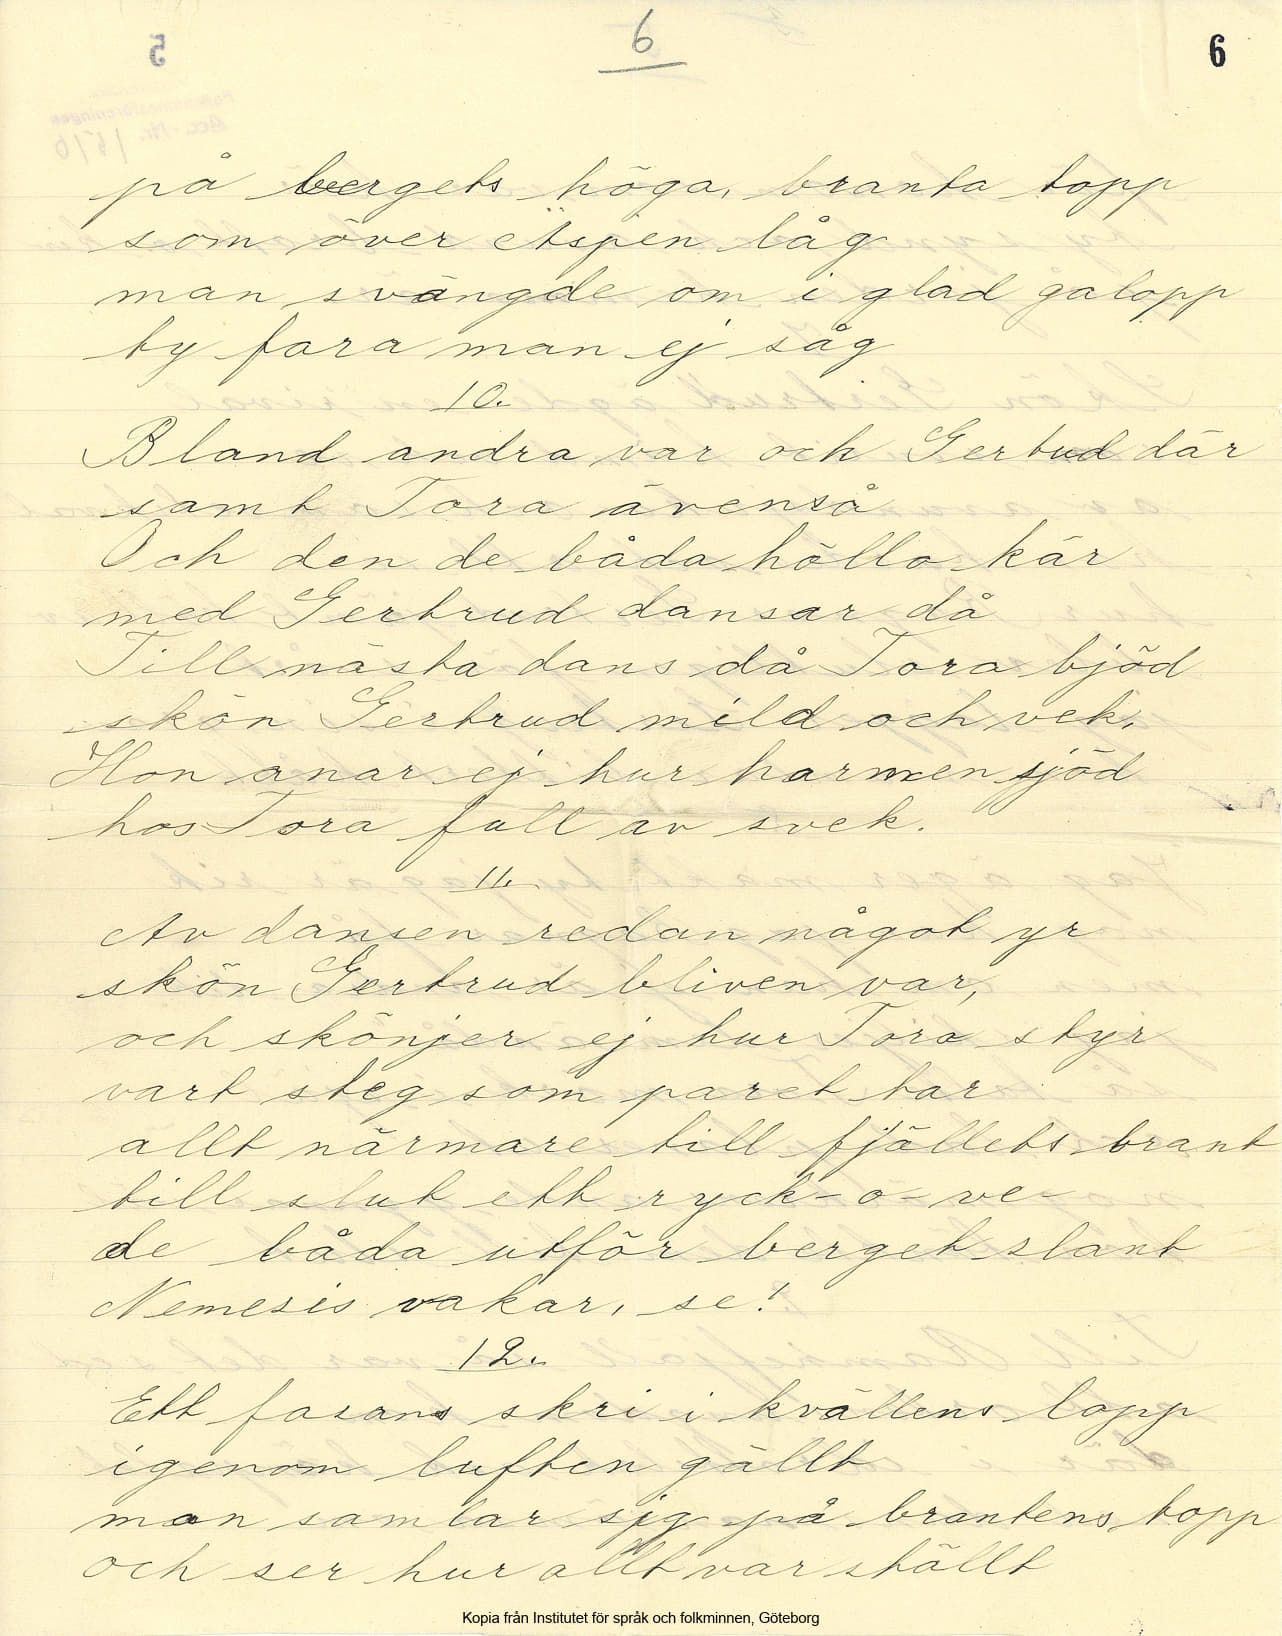 6
6
på bergets höga, branta topp
som över Äspen låg
man svängde om i glad galopp
ty fara man ej såg
10.
Bland andra var och Gertud där
samt Tora ävenså
Och den de båda höllo kär
med Gertrud dansar då
Till nästa dans då Tora bjöd
skön Gertrud mild och vek,
Hon anar ej hur harmen sjöd
hos Tora full av svek.
11.
Av dansen redan något yr
skön Gertrud bliven var,
och skönjer ej hur Tora styr
vart steg som paret tar
allt närmare till fjällets brant
till slut ett ryck - o - ve -
de båda utför berget slant
Nemesis vakar, se!
12.
Ett fasans skri i kvällens lopp
igenom luften gällt
man samlar sig på brantens topp
och ser hur allt var ställt
Kopia från Institutet för språk och folkminnen, Göteborg